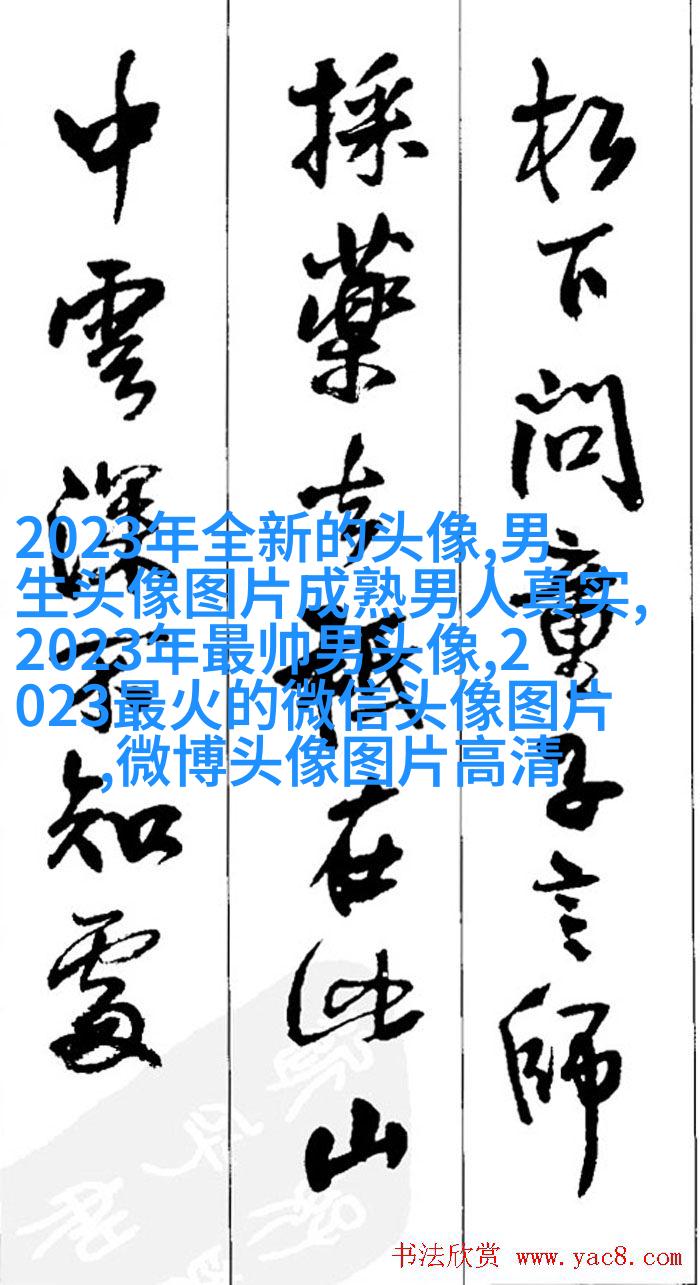 松下问童子言師
採藥去祇在此山
中雲深不知處
2023年全新的头像,男
生头像图片成熟男人真实,
2023年最帅男头像,2
023最火的微信头像图片
,微博头像图片高清
书法欣赏 www.yac8.com